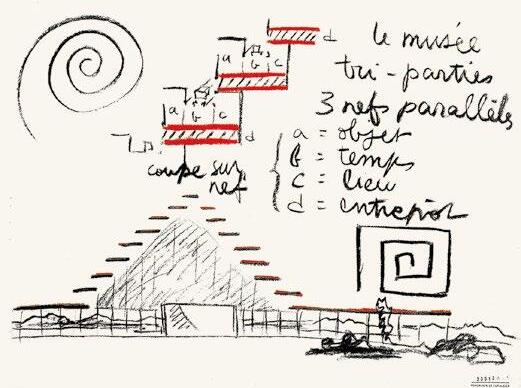 le musée
tri-parties
3 nefs parallèles
a = objet
b = temps
c = lieu
d = entrepôt
a b c d
a b c d
coupe sur
nef